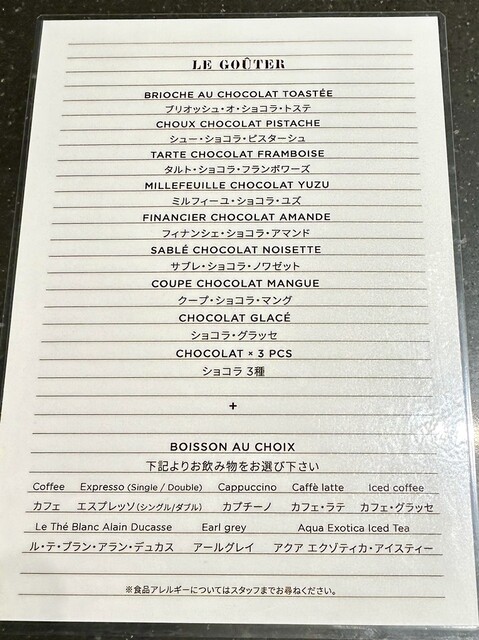 LE GOÛTER
BRIOCHE AU CHOCOLAT TOASTÉE
ブリオッシュ・オ・ショコラ・トステ
CHOUX CHOCOLAT PISTACHE
シュー・ショコラ・ピスターシュ
TARTE CHOCOLAT FRAMBOISE
タルト・ショコラ・フランボワーズ
MILLEFEUILLE CHOCOLAT YUZU
ミルフィーユ・ショコラ・ユズ
FINANCIER CHOCOLAT AMANDE
フィナンシェ・ショコラ・アマンド
SABLÉ CHOCOLAT NOISETTE
サブレ・ショコラ・ノワゼット
COUPE CHOCOLAT MANGUE
クープ・ショコラ・マング
CHOCOLAT GLACÉ
ショコラ・グラッセ
CHOCOLAT × 3 PCS
ショコラ 3種
+
BOISSON AU CHOIX
下記よりお飲み物をお選び下さい
Coffee Expresso (Single / Double) Cappuccino Caffè latte Iced coffee
カフェ エスプレッソ(シングル/ダブル) カプチーノ カフェ・ラテ カフェ・グラッセ
Le Thé Blanc Alain Ducasse Earl grey Aqua Exotica Iced Tea
ル・テ・ブラン・アラン・デュカス アールグレイ アクア エクゾティカ・アイスティー
※食品アレルギーについてはスタッフまでお尋ねください。